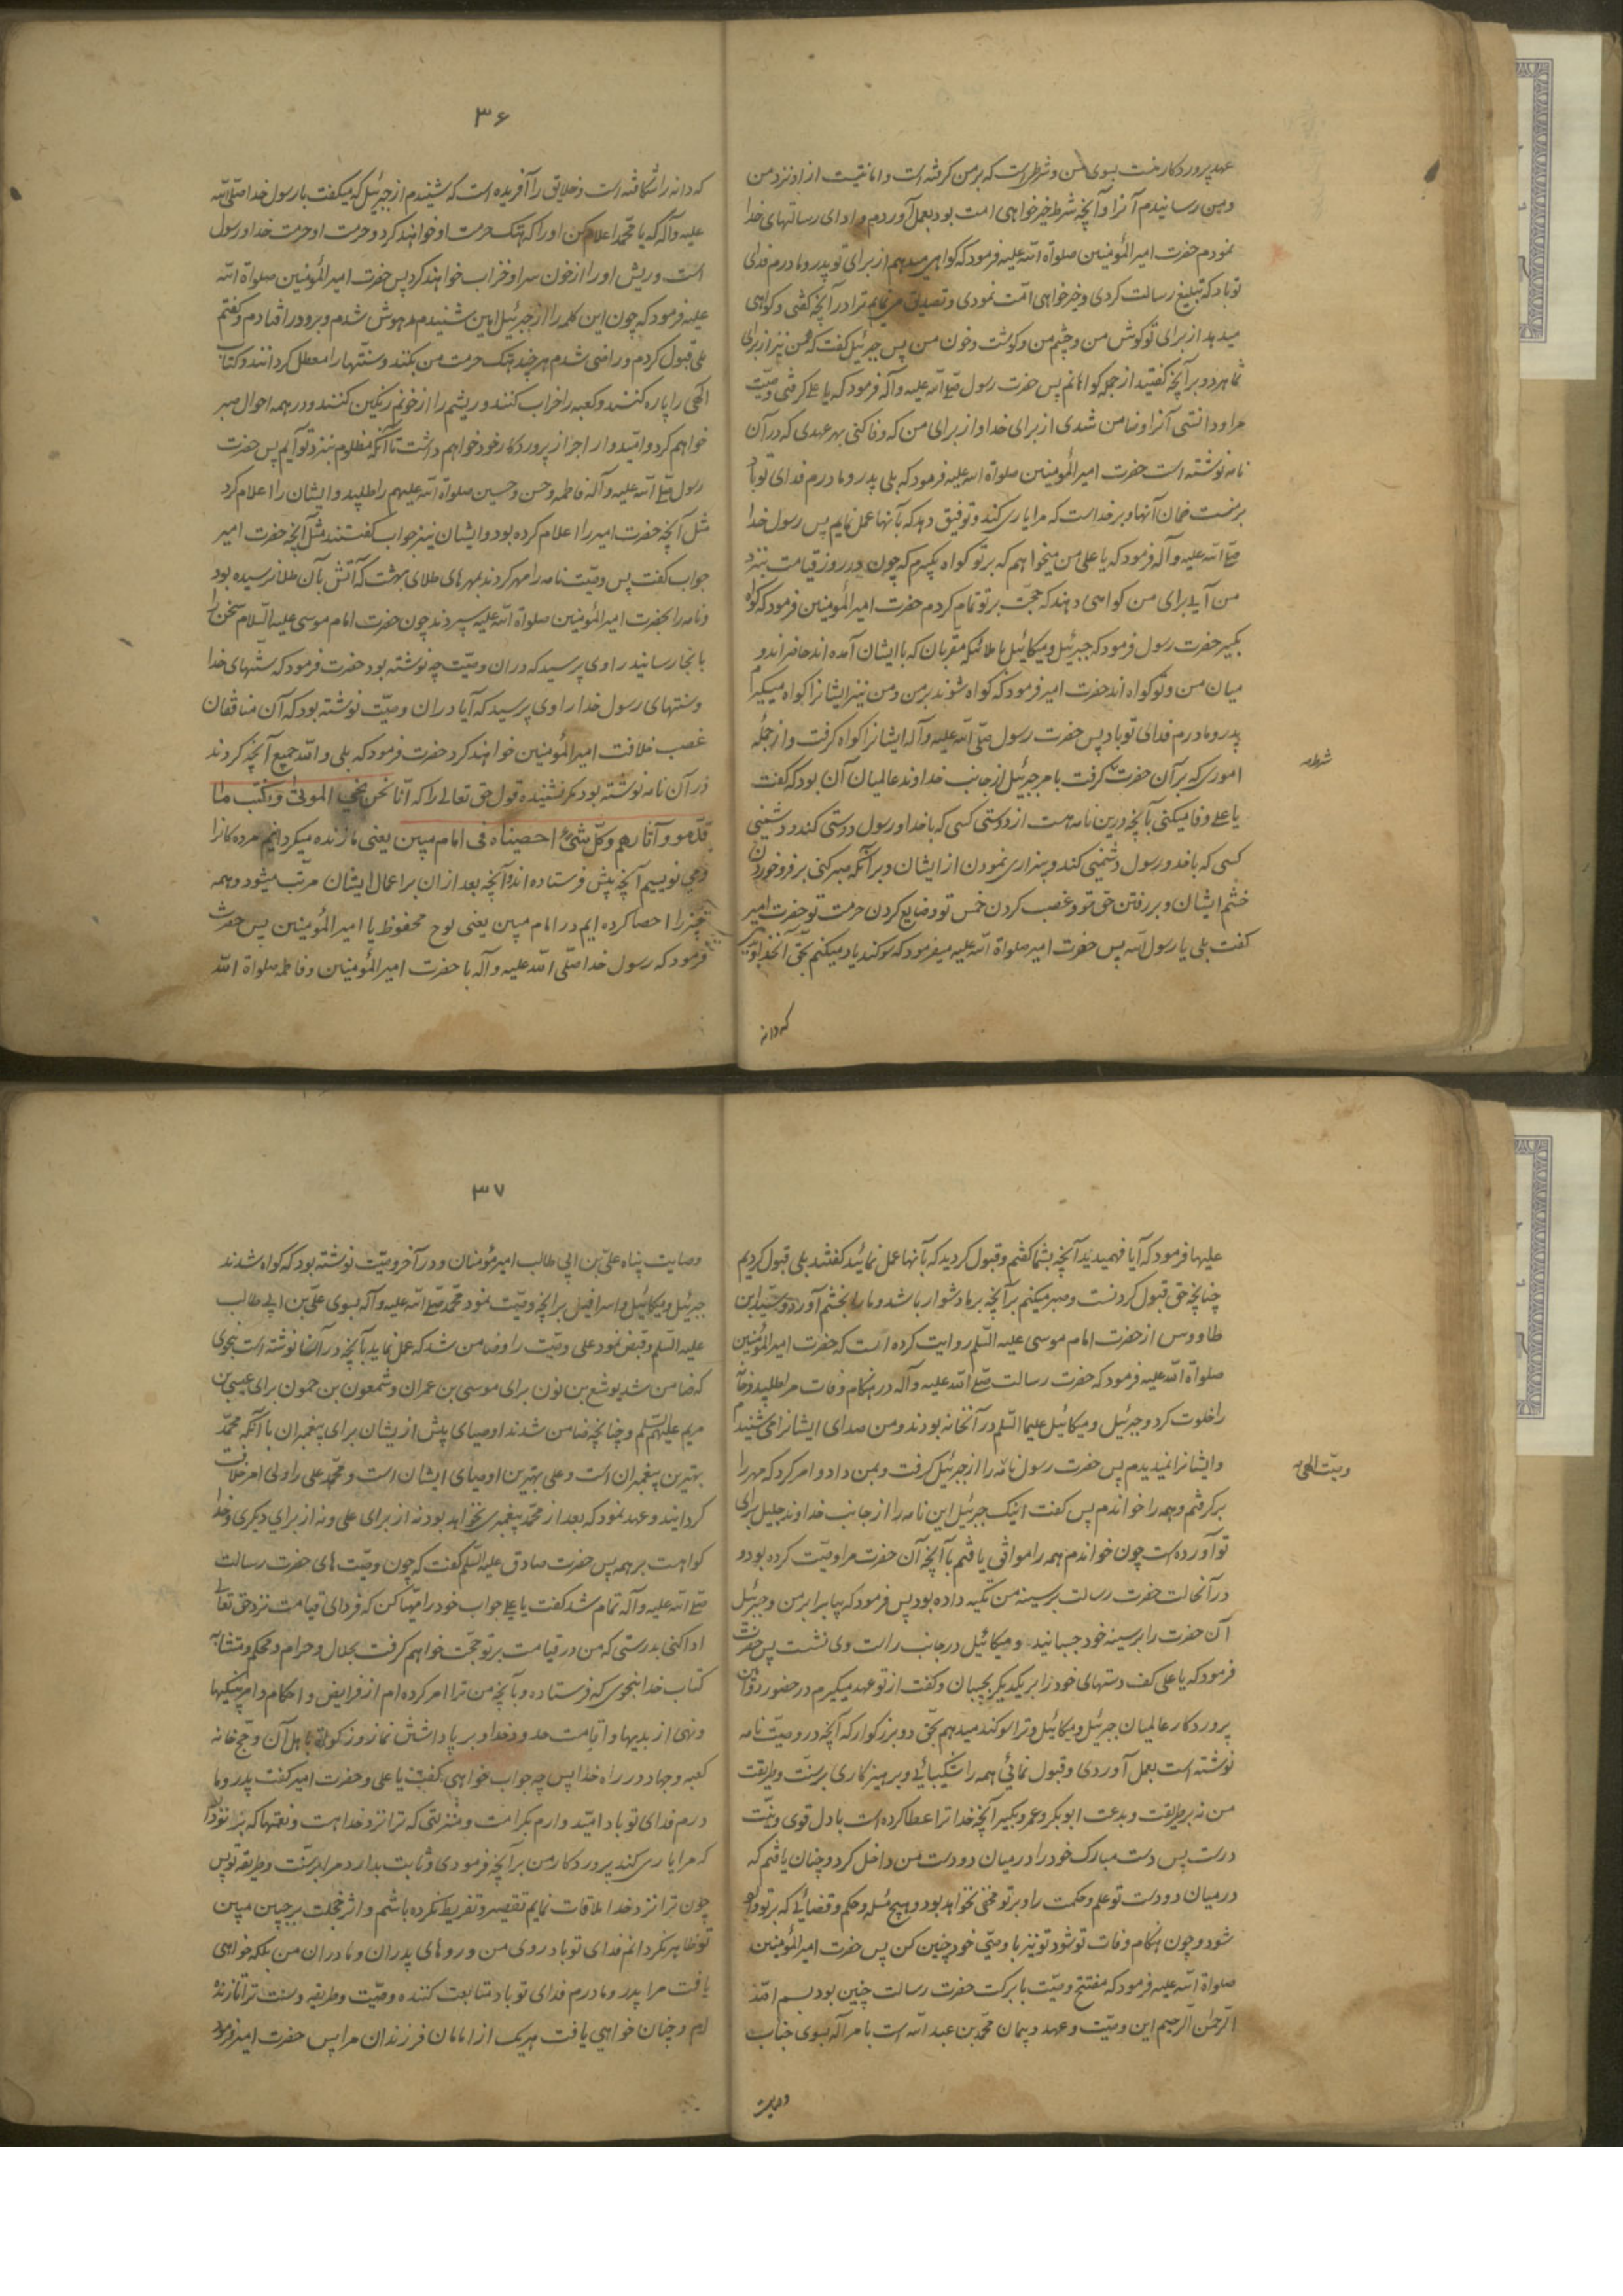 عهد پروردکار منست بسوی من و شرطی است که بر من کرفته است و امانتیست از او نزد من
و بمن رسانیدم آنرا و آنچه شرط خیرخواهی امت بود بعمل آوردم و ادای رسالتهای خدا
نمودم حضرت امیرالمؤمنین صلواة الله علیه فرمود که کواهی میدهم از برای تو پدر و مادرم فدای
تو باد که تبلیغ رسالت کردی و خیرخواهی امّت نمودی و تصدیق می نمایم ترا در آنچه کفتی و کواهی
میدهد از برای تو کوش من و چشم من و کوشت و خون من پس جبرئیل کفت که من نیز از برای
شما هر دو بر آنچه کفتید از جمله کواهانم پس حضرت رسول صلّی الله علیه و آله فرمود که یا علی کرفتی وصیّت
مرا و دانستی آنرا و ضامن شدی از برای خدا و از برای من که وفا کنی بهر عهدی که در آن
نامه نوشته است حضرت امیرالمؤمنین صلواة الله علیه فرمود که بلی پدر و مادرم فدای تو باد
بر منست ضمان آنها و بر خداست که مرا یاری کند و توفیق دهد که بآنها عمل نمایم پس رسول خدا
صلّی الله علیه و آله فرمود که یا علی من میخواهم که بر تو کواه بکیرم که چون در روز قیامت بنزد
من آیی برای من کواهی دهند که حجّت بر تو تمام کردم حضرت امیرالمؤمنین فرمود که کواه
بکیر حضرت رسول فرمود که جبرئیل و میکائیل با ملائکه مقربان که با ایشان آمده اند حاضراند و
میان من و تو کواه اند حضرت امیر فرمود که کواه شوند بر من و من نیز ایشانرا کواه میکیرم
پدر و مادرم فدای تو باد پس حضرت رسول صلّی الله علیه و آله ایشانرا کواه کرفت و از جمله
اموری که بر آن حضرت شرط کرفت بامر جبرئیل از جانب خداوند عالمیان آن بود که کفت
یا علی وفا میکنی بآنچه درین نامه هست از دوستی کسی که با خدا و رسول دوستی کند و دشمنی
کسی که با خدا و رسول دشمنی کند و بیزاری نمودن از ایشان و بر آنکه صبر کنی بر فرو خوردن
خشم ایشان و بر رفتن حق تو و غصب کردن خمس تو و ضایع کردن حرمت تو حضرت امیر
کفت بلی یا رسول الله پس حضرت امیر صلواة الله علیه میفرمود که سوکند یاد میکنم بحقّ آنخداوندی
که دانه
۳۶
که دانه را شکافته است و خلایق را آفریده است که شنیدم از جبرئیل که میکفت با رسول خدا صلّی الله
علیه و آله که یا محمّد اعلام کن او را که هتک حرمت او خواهند کرد و حرمت او حرمت خدا و رسول
است و ریش او را از خون سر او خضاب خواهند کرد پس حضرت امیرالمؤمنین صلواة الله
علیه فرمود که چون این کلمه را از جبرئیل امین شنیدم مدهوش شدم و برو در افتادم و کفتم
بلی قبول کردم و راضی شدم هر چند هتک حرمت من بکنند و سنّتها را معطل کردانند و کتاب
الهی را پاره کنند و کعبه را خراب کنند و ریشم را از خونم رنکین کنند و در همه احوال صبر
خواهم کرد و امّیدوار اجر از پروردکار خود خواهم داشت تا آنکه مظلوم بنزد تو آیم پس حضرت
رسول صلّی الله علیه و آله فاطمه و حسن و حسین صلواة الله علیهم را طلبید و ایشان را اعلام کرد
مثل آنچه حضرت امیر را اعلام کرده بود و ایشان نیز جواب کفتند مثل آنچه حضرت امیر
جواب کفت پس وصیّت نامه را مهر کردند بمهرهای طلای بهشت که آتش بآن طلا نرسیده بود
و نامه را بحضرت امیرالمؤمنین صلواة الله علیه سپردند چون حضرت امام موسی علیه السّلام سخن را
بانجا رسانید راوی پرسید که دران وصیّت چه نوشته بود حضرت فرمود که سنّتهای خدا
و سنتهای رسول خدا راوی پرسید که آیا دران وصیّت نوشته بود که آن منافقان
غصب خلافت امیرالمؤمنین خواهند کرد حضرت فرمود که بلی والله جمیع آنچه کردند
در آن نامه نوشته بود مکر نشنیده قول حق تعالی را که انّا نحن نحیی الموتی و نکتب ما
قدّموا و آثارهم و کلّ شیءٍ احصیناه فی امام مبین یعنی ما زنده میکردانیم مرده کانرا
و می نویسیم آنچه پیش فرستاده اند و آنچه بعد از ان بر اعمال ایشان مرتّب میشود و همه
چیز را احصا کرده ایم در امام مبین یعنی لوح محفوظ یا امیرالمؤمنین پس حضرت
فرمود که رسول خدا صلّی الله علیه و آله با حضرت امیرالمؤمنین و فاطمه صلواة الله
علیها فرمود که آیا فهمیدید آنچه بشما کفتم و قبول کردید که بآنها عمل نمائید کفتند بلی قبول کردیم
چنانچه حق قبول کردنست و صبر میکنیم بر آنچه بر ما دشوار باشد و ما را بخشم آورد و سیّد ابن
طاووس از حضرت امام موسی علیه السّلم روایت کرده است که حضرت امیرالمؤمنین
صلواة الله علیه فرمود که حضرت رسالت صلّی الله علیه و آله در هنکام وفات مرا طلبید و خانه
را خلوت کرد و جبرئیل و میکائیل علیهما السّلم در آنخانه بودند و من صدای ایشانرا می شنیدم
و ایشانرا نمیدیدم پس حضرت رسول نامه را از جبرئیل کرفت و بمن داد و امر کرد که مهر را
وصیّت الهی
برکرفتم و همه را خواندم پس کفت اینک جبرئیل این نامه را از جانب خداوند جلیل برای
تو آورده است چون خواندم همه را موافق یافتم بآنچه آن حضرت مرا وصیّت کرده بود و
در آنحالت حضرت رسالت بر سینه من تکیه داده بود پس فرمود که بیا برابر من و جبرئیل
آن حضرت را بر سینه خود چسبانید و میکائیل در جانب راست وی نشست پس حضرت
فرمود که یا علی کف دستهای خود را بر یکدیکر بچسبان و کفت از تو عهد میکیرم در حضور دو امین
پروردکار عالمیان جبرئیل و میکائیل و ترا سوکند میدهم بحقّ دو بزرکوار که آنچه در وصیّت نامه
نوشته است بعمل آوردی و قبول نمائی همه را شکیبائی و پرهیزکاری بر سنّت و طریقت
من نه بر طریقت و بدعت ابوبکر و عمر و بکیر آنچه خدا ترا عطا کرده است با دل قوی و نیّت
درست پس دست مبارک خود را در میان دو دست من داخل کرد و چنان یافتم که
در میان دو دست تو علم و حکمت را و بر تو مخفی نخواهد بود و هیچ مسئله و حکم و قضائی که بر تو وارد
شود و چون هنکام وفات تو شود تو نیز با وصیّ خود چنین کن پس حضرت امیرالمؤمنین
صلواة الله علیه فرمود که مفتتح وصیّت با برکت حضرت رسالت چنین بود بسم الله
الرّحمن الرّحیم این وصیّت و عهد و پیمان محمّد بن عبدالله است بامر اله بسوی جناب
وصایت
۳۷
وصایت پناه علیّ بن ابی طالب امیر مؤمنان و در آخر وصیّت نوشته بود که کواه شدند
جبرئیل و میکائیل و اسرافیل بر آنچه وصیّت نمود محمّد صلّی الله علیه و آله بسوی علیّ بن ابی طالب
علیه السّلم و قبض نمود علی وصیّت را و ضامن شد که عمل نماید بآنچه در آنها نوشته است بنحوی
که ضامن شد یوشع بن نون برای موسی بن عمران و شمعون بن حمون برای عیسی بن
مریم علیهم السّلم و چنانچه ضامن شدند اوصیای پیش ازیشان برای پیغمبران با آنکه محمّد
بهترین پیغمبران است و علی بهترین اوصیای ایشان است و محمّد علی را ولی امر خلافت
کردانید و عهد نمود که بعد از محمّد پیغمبری نخواهد بود نه از برای علی و نه از برای دیکری و خدا
کواهست بر همه پس حضرت صادق علیه السّلم کفت که چون وصیّت های حضرت رسالت
صلّی الله علیه و آله تمام شد کفت یا علی جواب خود را مهیّا کن که فردای قیامت نزد حق تعالی
ادا کنی بدرستی که من در قیامت بر تو حجّت خواهم کرفت بحلال و حرام و محکم و متشابه
کتاب خدا بنحوی که فرستاده و بآنچه من ترا امر کرده ام از فرایض و احکام و امر بنیکیها
و نهی از بدیها و اقامت حدود خدا و بر پا داشتن نماز و زکوة باهل آن و حجّ خانه
کعبه و جهاد در راه خدا پس چه جواب خواهی کفت یا علی و حضرت امیر کفت پدر و ما
درم فدای تو باد امّید وارم بکرامت و منزلتی که ترا نزد خدا هست و نعمتها که بر تو دارد
که مرا یاری کند پروردکار من بر آنچه فرمودی و ثابت بدارد مرا بر سنّت و طریقه تو پس
چون ترا نزد خدا ملاقات نمایم تقصیر و تفریط نکرده باشم و اثر خجلت بر جبین مبین
تو ظاهر نکردانم فدای تو باد روی من و روهای پدران و مادران من بلکه خواهی
یافت مرا پدر و مادرم فدای تو باد متابعت کننده وصیّت و طریقه و سنت ترا تا زنده
ام و چنان خواهی یافت هر یک از امامان فرزندان مرا پس حضرت امیر فرمود